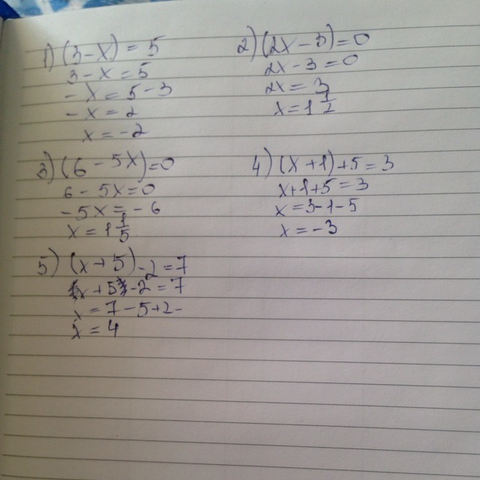 1) (3-x) = 5
3-x = 5
-x = 5-3
-x = 2
x = -2
2) (2x-3) = 0
2x-3 = 0
2x = 3
x = 1 1/2
3) (6 - 5x) = 0
6 - 5x = 0
-5x = -6
x = 1 1/5
4) (x+1)+5 = 3
x+1+5 = 3
x = 3-1-5
x = -3
5) (x+5)-2 = 7
x+5-2 = 7
x = 7-5+2
x = 4